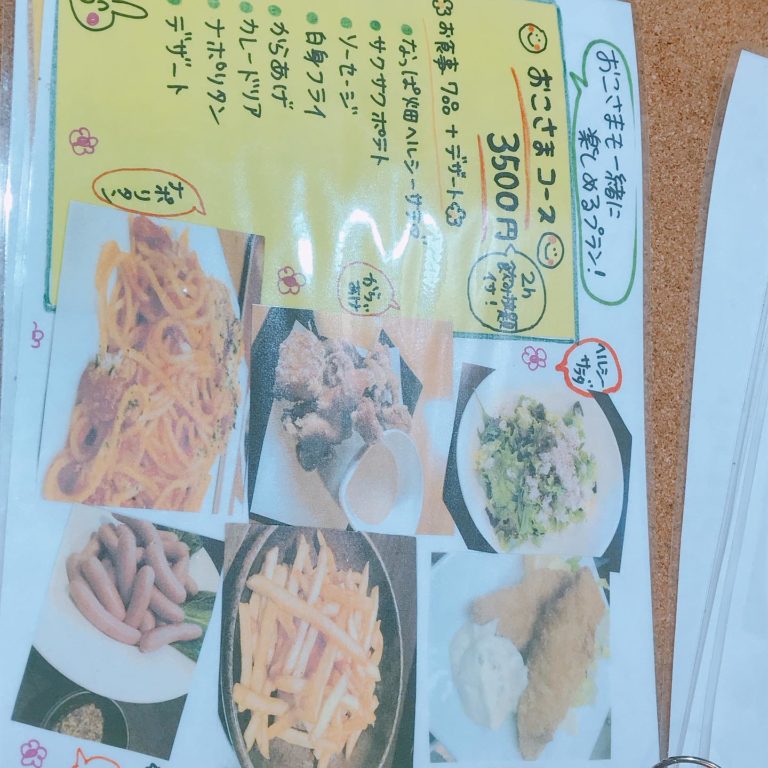 おこさまも一緒に
楽しめるプラン!
おこさまコース
3500円
2h
飲み放題
付!
お食事 7品 + デザート
・なっぱ畑ヘルシーサラダ
・サクサクポテト
・ソーセージ
・白身フライ
・からあげ
・カレードリア
・ナポリタン
・デザート
ナポリタン
からあげ
ヘルシー
サラダ